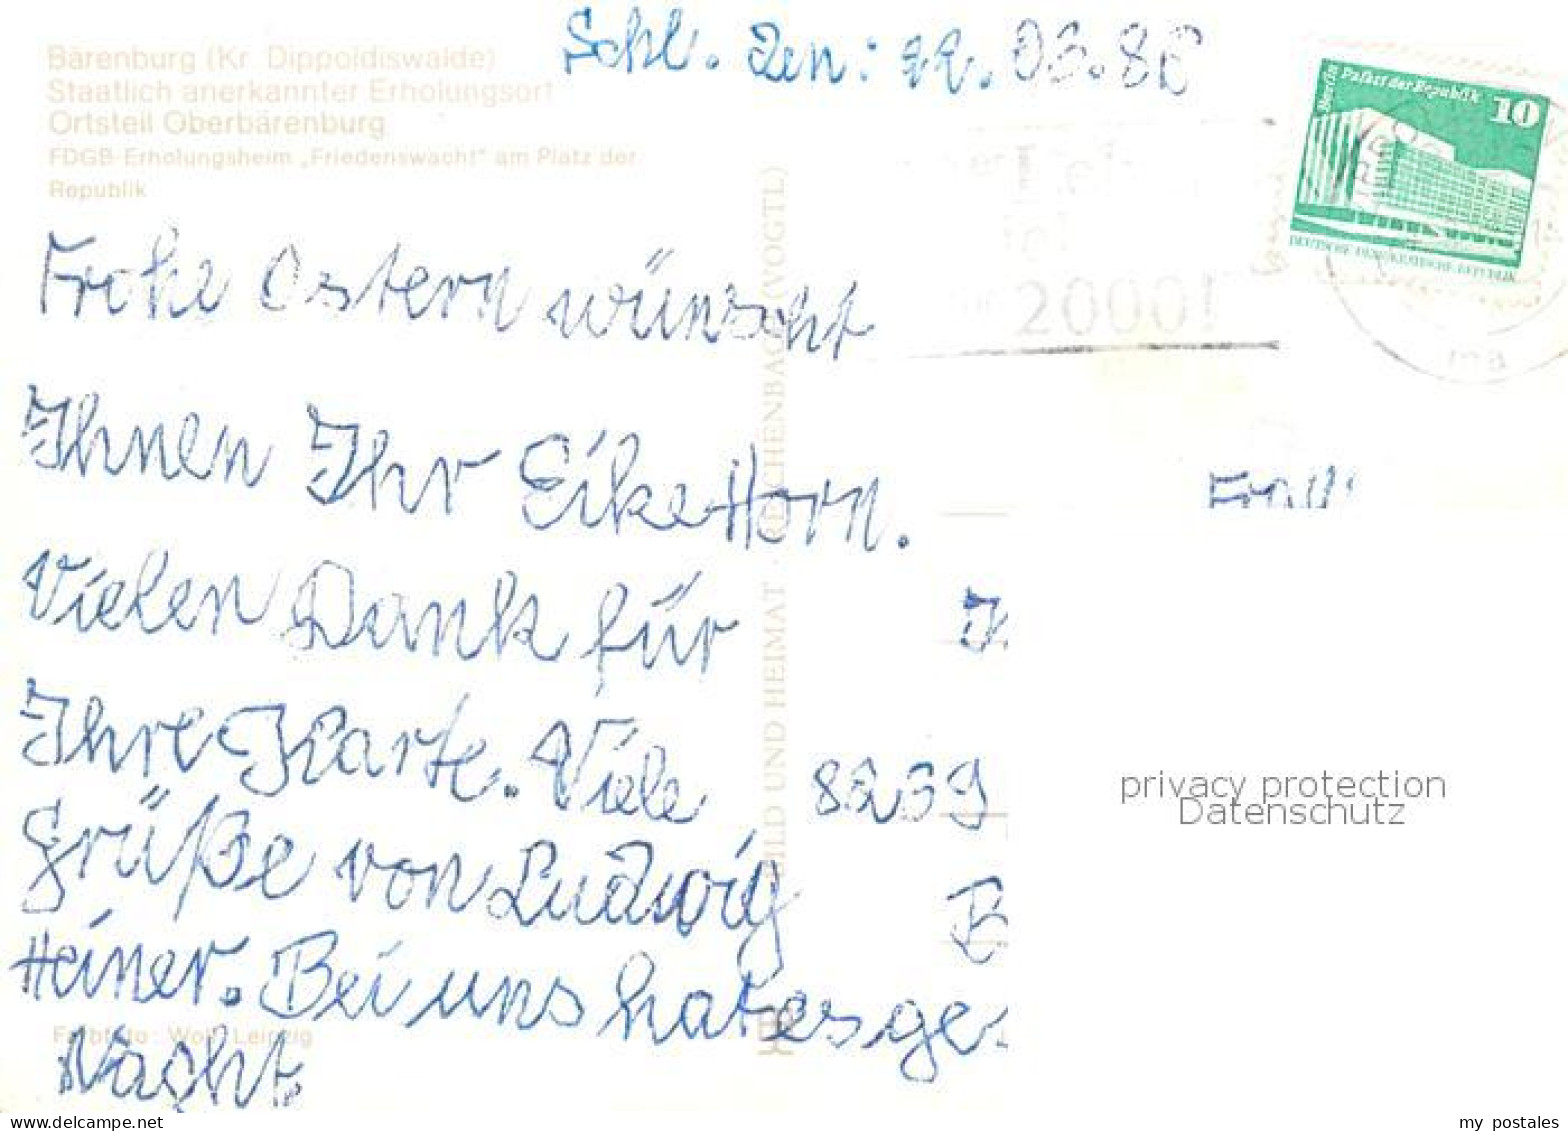 Schl. den: 22. 03. 86
Bärenburg (Kr. Dippoldiswalde)
Staatlich anerkannter Erholungsort
Ortsteil Oberbärenburg
FDGB-Erholungsheim „Friedenswacht" am Platz der
Republik
Berlin Palast der Republik 10
DEUTSCHE DEMOKRATISCHE REPUBLIK
2000!
Frohe Ostern wünscht
Ihnen Ihr Eike Horn.
Vielen Dank für
Ihre Karte. Viele
Grüße von Ludwig
Heiner. Bei uns hat es ge-
Nacht.
Farbfoto: Wolf, Leipzig
BILD UND HEIMAT · REICHENBACH (VOGTL)
8239
B
privacy protection
Datenschutz
www.delcampe.net
my_postales